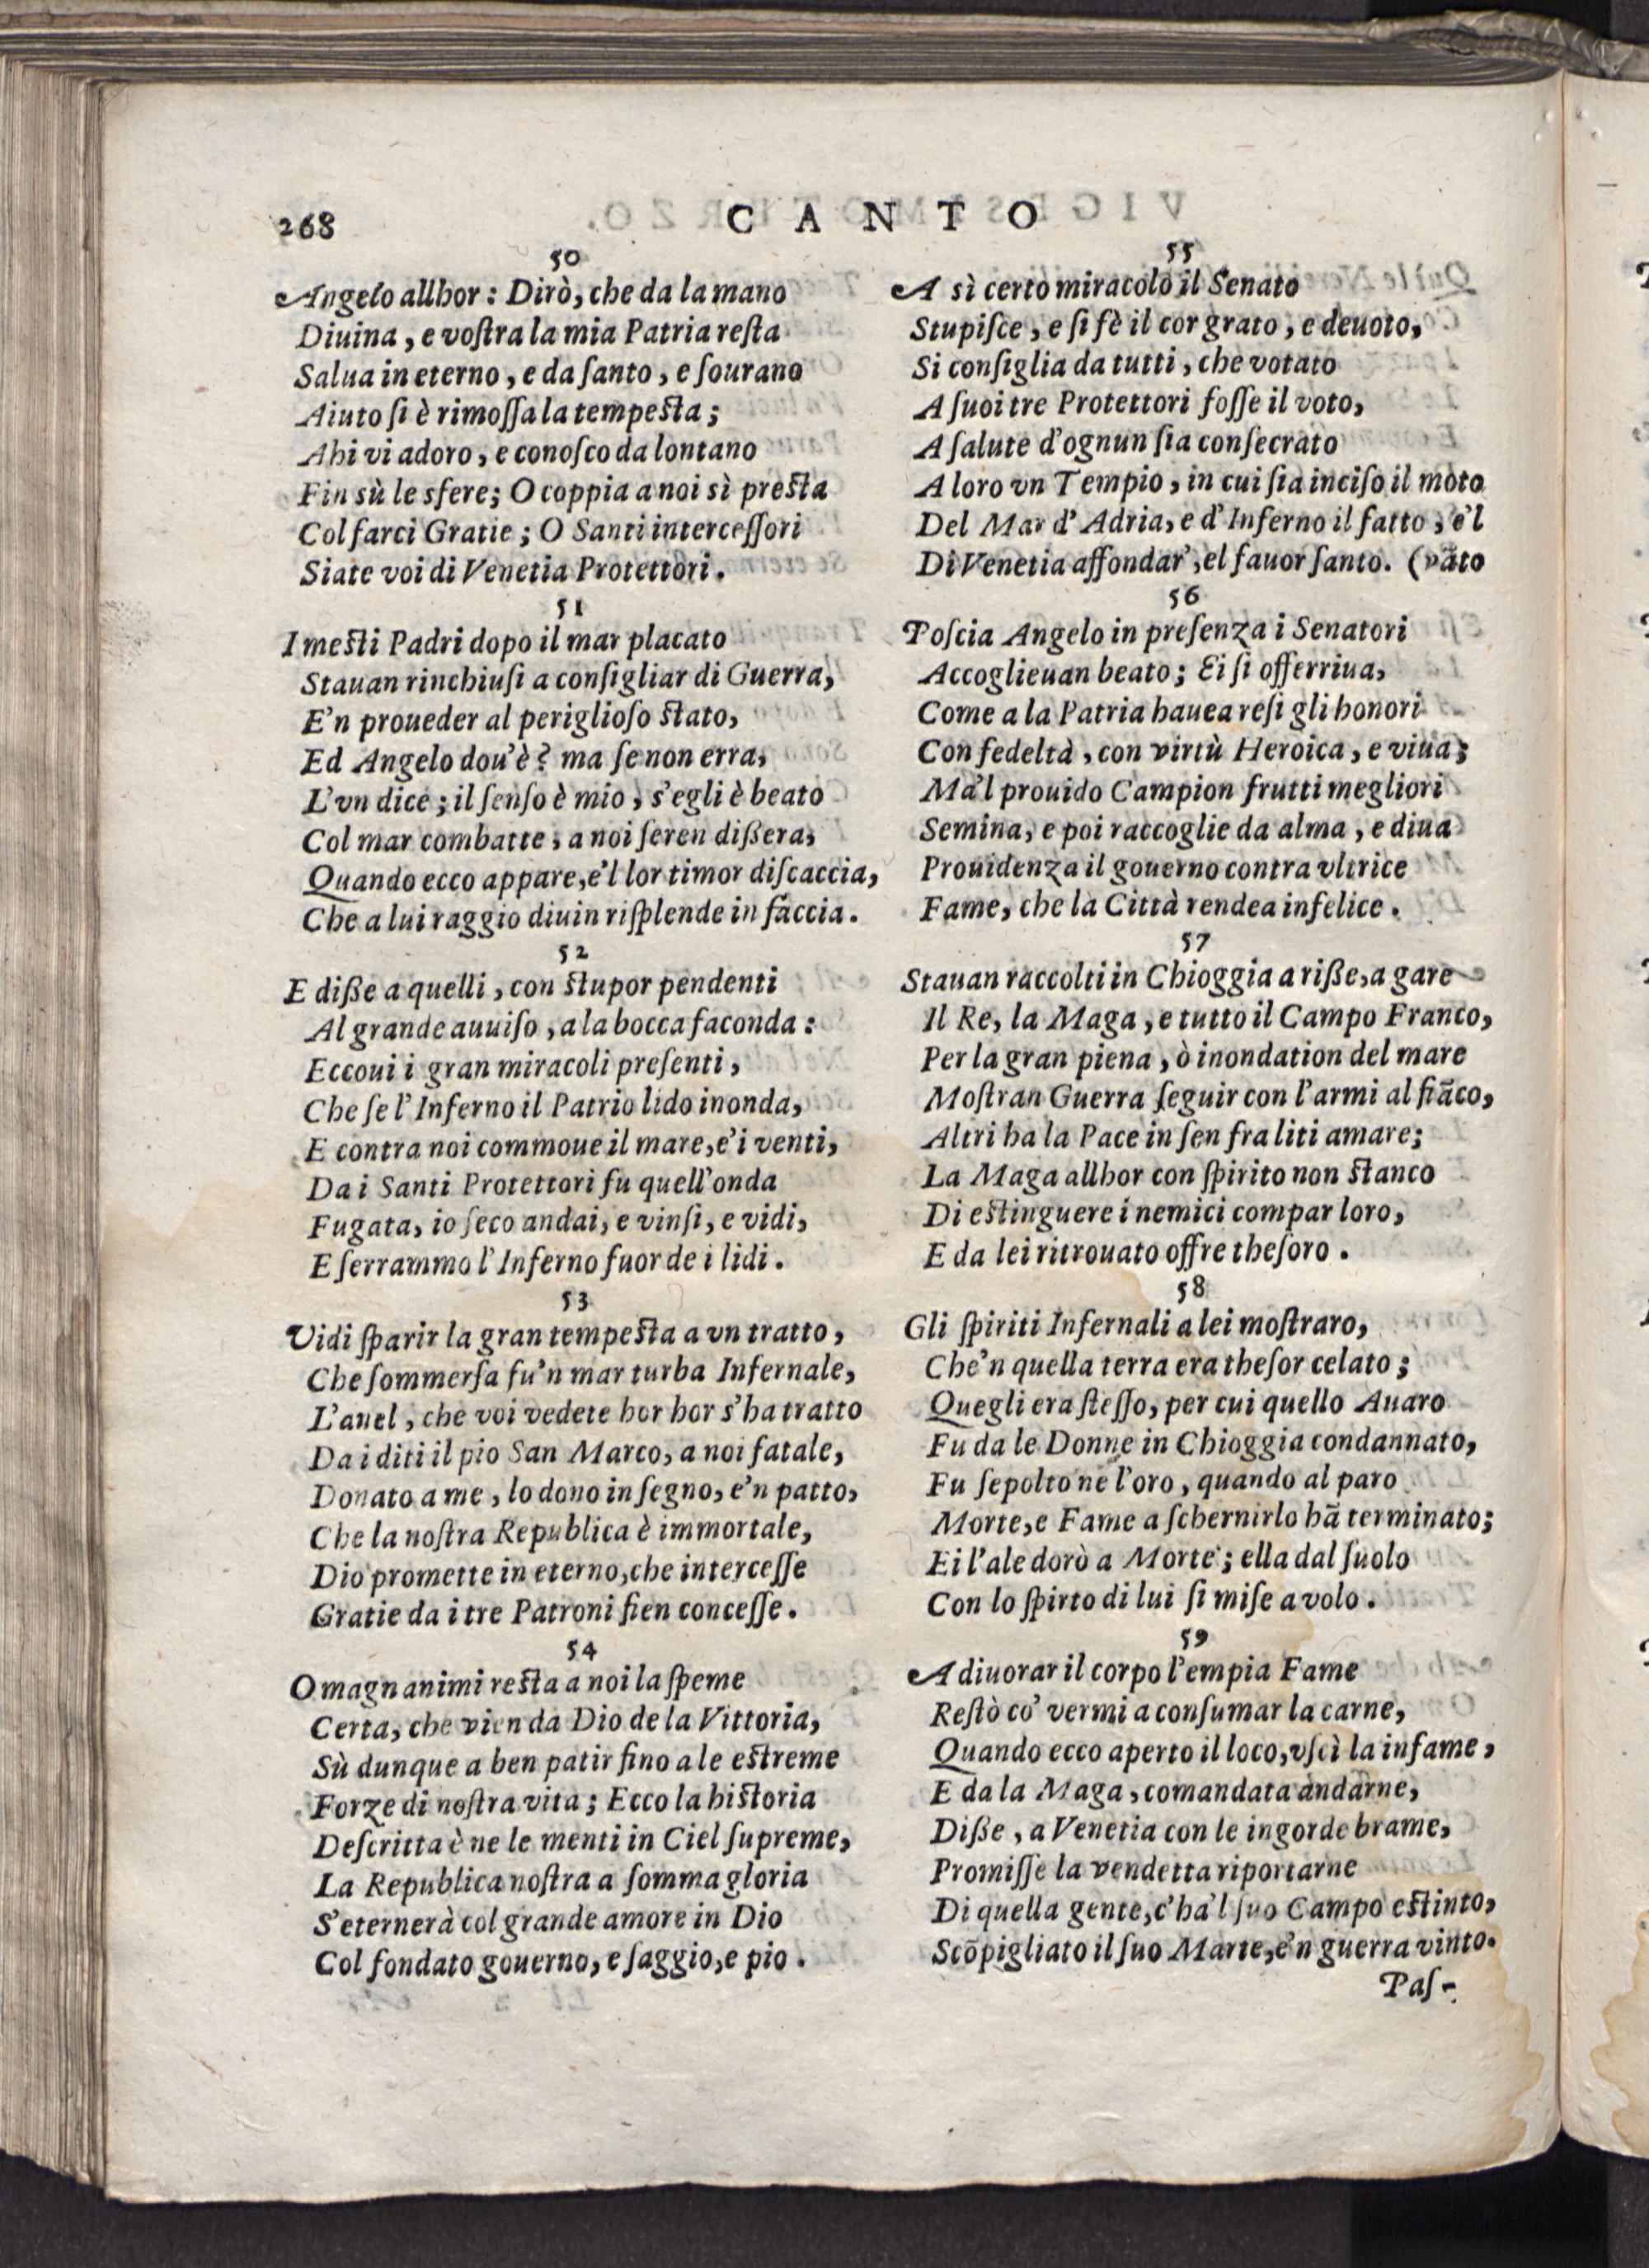 268
CANTO
50
Angelo allhor: Dirò, che da la mano
Diuina, e voſtra la mia Patria reſta
Salua in eterno, e da ſanto, e ſourano
Aiuto ſi è rimoſſa la tempeſta;
Ahi vi adoro, e conoſco da lontano
Fin sù le sfere; O coppia a noi sì preſta
Col farci Gratie; O Santi interceſſori
Siate voi di Venetia Protettori.
51
I meſti Padri dopo il mar placato
Stauan rinchiuſi a conſigliar di Guerra,
E'n proueder al periglioſo ſtato,
Ed Angelo dou'è? ma ſe non erra,
L'vn dice; il ſenſo è mio, s'egli è beato
Col mar combatte, a noi ſeren dißera,
Quando ecco appare, e'l lor timor diſcaccia,
Che a lui raggio diuin riſplende in faccia.
52
E diße a quelli, con ſtupor pendenti
Al grande auuiſo, a la bocca faconda:
Eccoui i gran miracoli preſenti,
Che ſe l'Inferno il Patrio lido inonda,
E contra noi commoue il mare, e'i venti,
Da i Santi Protettori fu quell'onda
Fugata, io ſeco andai, e vinſi, e vidi,
E ſerrammo l'Inferno fuor de i lidi.
53
Vidi ſparir la gran tempeſta a vn tratto,
Che ſommerſa fu'n mar turba Infernale,
L'anel, che voi vedete hor hor s'ha tratto
Da i diti il pio San Marco, a noi fatale,
Donato a me, lo dono in ſegno, e'n patto,
Che la noſtra Republica è immortale,
Dio promette in eterno, che interceſſe
Gratie da i tre Patroni fien conceſſe.
54
O magnanimi reſta a noi la ſpeme
Certa, che vien da Dio de la Vittoria,
Sù dunque a ben patir fino a le eſtreme
Forze di noſtra vita; Ecco la hiſtoria
Deſcritta è ne le menti in Ciel ſupreme,
La Republica noſtra a ſomma gloria
S'eternerà col grande amore in Dio
Col fondato gouerno, e ſaggio, e pio.
55
A sì certo miracolo il Senato
Stupiſce, e ſi fè il cor grato, e deuoto,
Si conſiglia da tutti, che votato
A ſuoi tre Protettori foſſe il voto,
A ſalute d'ognun ſia conſecrato
A loro vn Tempio, in cui ſia inciſo il moto
Del Mar d'Adria, e d'Inferno il fatto, e'l
Di Venetia affondar', el fauor ſanto. (vãto
56
Poſcia Angelo in preſenza i Senatori
Accoglieuan beato; Ei ſi offerriua,
Come a la Patria hauea reſi gli honori
Con fedeltà, con virtù Heroica, e viua;
Ma'l prouido Campion frutti megliori
Semina, e poi raccoglie da alma, e diua
Prouidenza il gouerno contra vltrice
Fame, che la Città rendea infelice.
57
Stauan raccolti in Chioggia a riße, a gare
Il Re, la Maga, e tutto il Campo Franco,
Per la gran piena, ò inondation del mare
Moſtran Guerra ſeguir con l'armi al fiãco,
Altri ha la Pace in ſen fra liti amare;
La Maga allhor con ſpirito non ſtanco
Di eſtinguere i nemici compar loro,
E da lei ritrouato offre theſoro.
58
Gli ſpiriti Infernali a lei moſtraro,
Che'n quella terra era theſor celato;
Quegli era ſteſſo, per cui quello Auaro
Fu da le Donne in Chioggia condannato,
Fu ſepolto ne l'oro, quando al paro
Morte, e Fame a ſchernirlo hã terminato;
Ei l'ale dorò a Morte; ella dal ſuolo
Con lo ſpirto di lui ſi miſe a volo.
59
A diuorar il corpo l'empia Fame
Reſtò co' vermi a conſumar la carne,
Quando ecco aperto il loco, vſcì la infame,
E da la Maga, comandata andarne,
Diße, a Venetia con le ingorde brame,
Promiſſe la vendetta riportarne
Di quella gente, c'ha'l ſuo Campo eſtinto,
Scõpigliato il ſuo Marte, e'n guerra vinto.
Paſ-